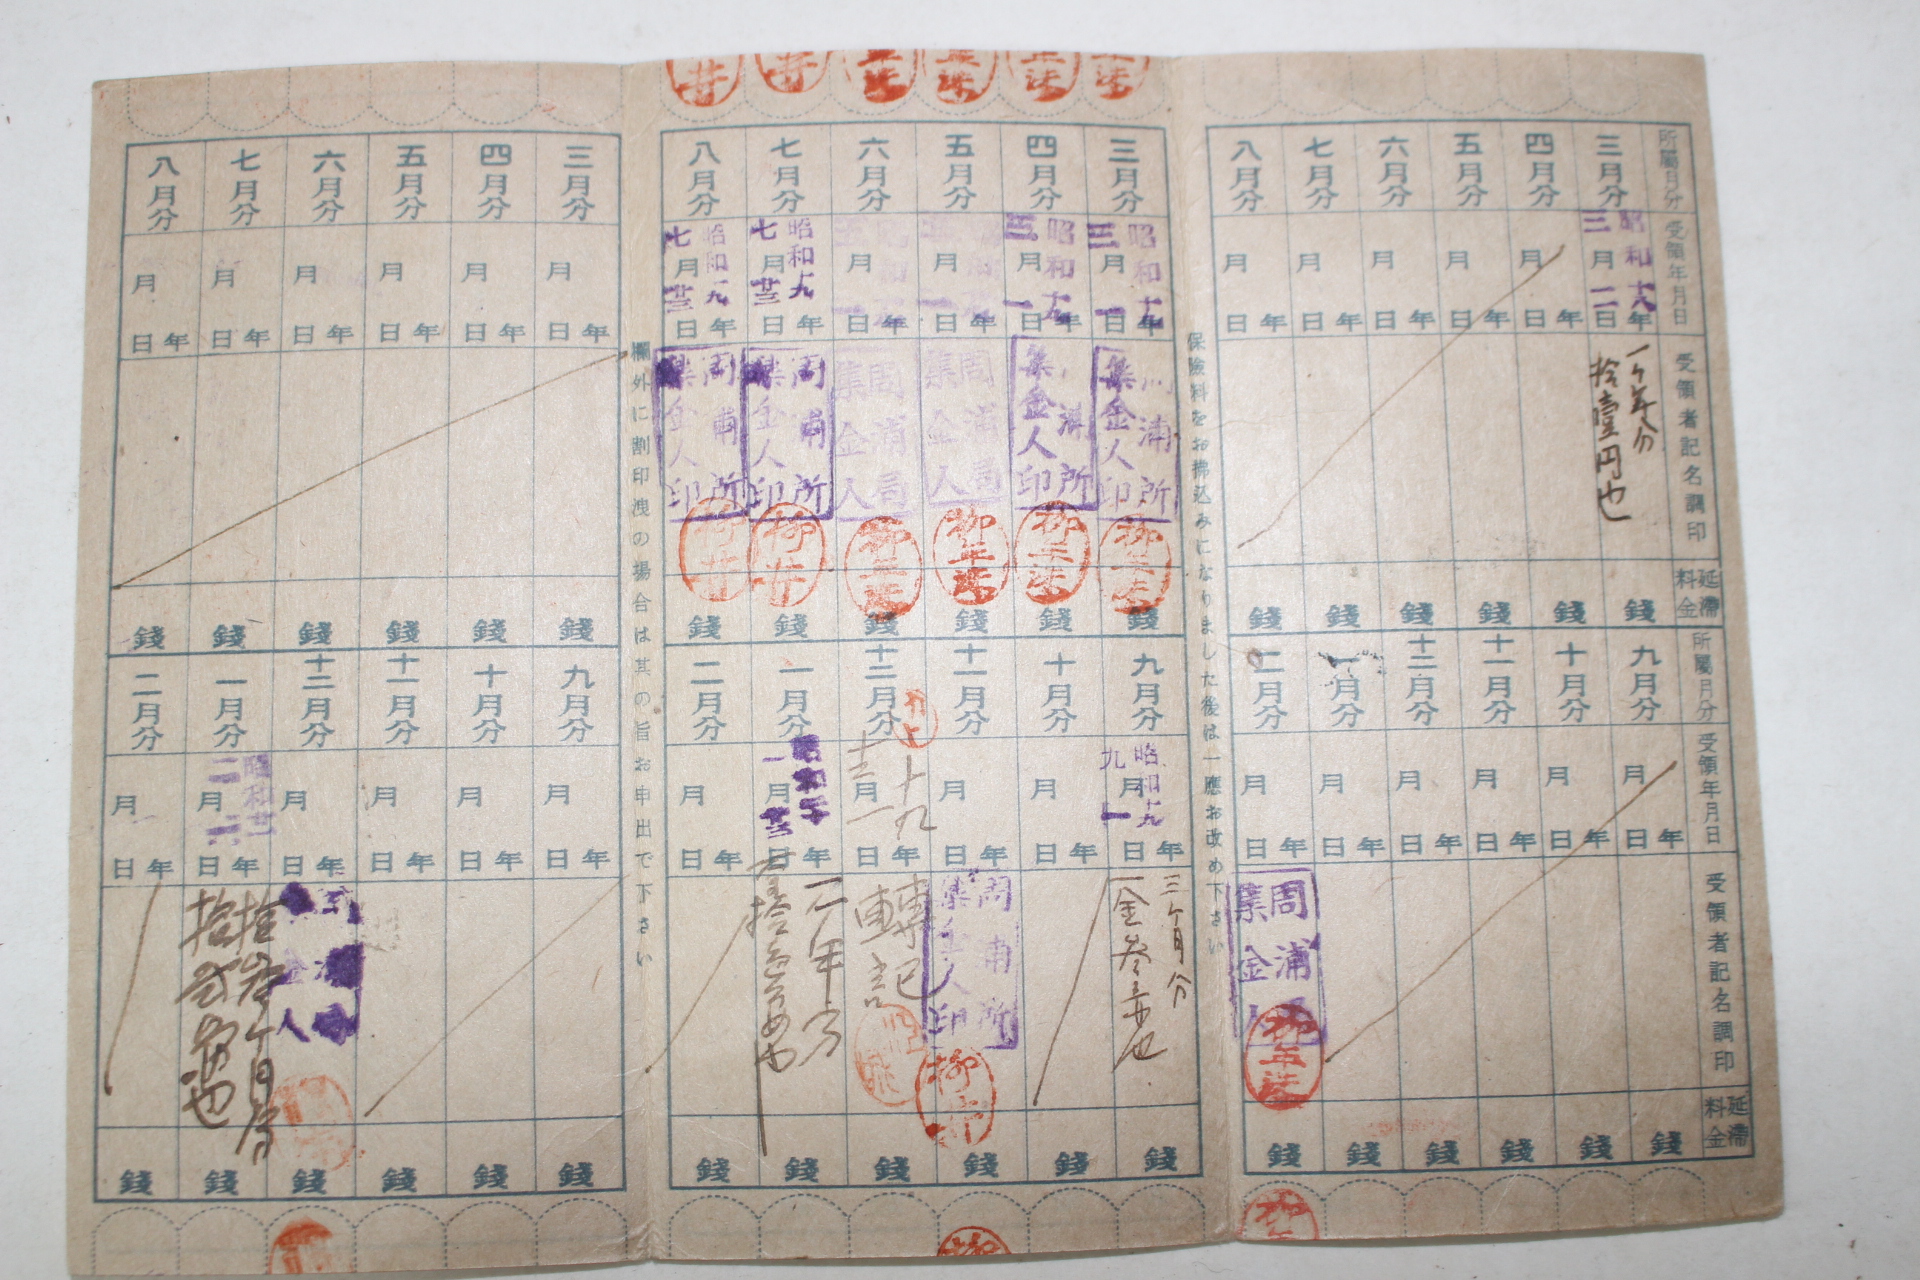 所屬月分
三月分
四月分
五月分
六月分
七月分
八月分
受領年月日
昭和十八年
三月一二日
年月日
年月日
年月日
年月日
年月日
受領者記名調印
一ヶ年分
拾壹円也
延滯料金
錢
錢
錢
錢
錢
錢
所屬月分
九月分
十月分
十一月分
十二月分
一月分
二月分
受領年月日
年月日
年月日
年月日
年月日
年月日
年月日
受領者記名調印
周浦
集金人
延滯料金
錢
錢
錢
錢
錢
錢
保險料をお拂込みになりました後は一應お改め下さい
三月分
四月分
五月分
六月分
七月分
八月分
昭和十九年
三月一日
昭和十九年
三月一日
年月日
年月日
昭和十九年
七月廿三日
昭和十九年
七月廿三日
浦所
集金人印
浦所
集金人印
周浦局
集金人
周浦局
集金人
周浦所
集金人印
周浦所
集金人印
錢
錢
錢
錢
錢
錢
九月分
十月分
十一月分
十二月分
一月分
二月分
昭和十九年
九月一日
年月日
年月日
十九年
月一日
昭和二十年
一月廿三日
年月日
三ヶ月分
金參円也
周浦所
集金人印
柳井
轉記
錢
錢
錢
錢
錢
錢
欄外に割印洩の場合は其の旨お申出で下さい
三月分
四月分
五月分
六月分
七月分
八月分
年月日
年月日
年月日
年月日
年月日
年月日
錢
錢
錢
錢
錢
錢
九月分
十月分
十一月分
十二月分
一月分
二月分
年月日
年月日
年月日
年月日
昭和
二月
年月日
錢
錢
錢
錢
錢
錢